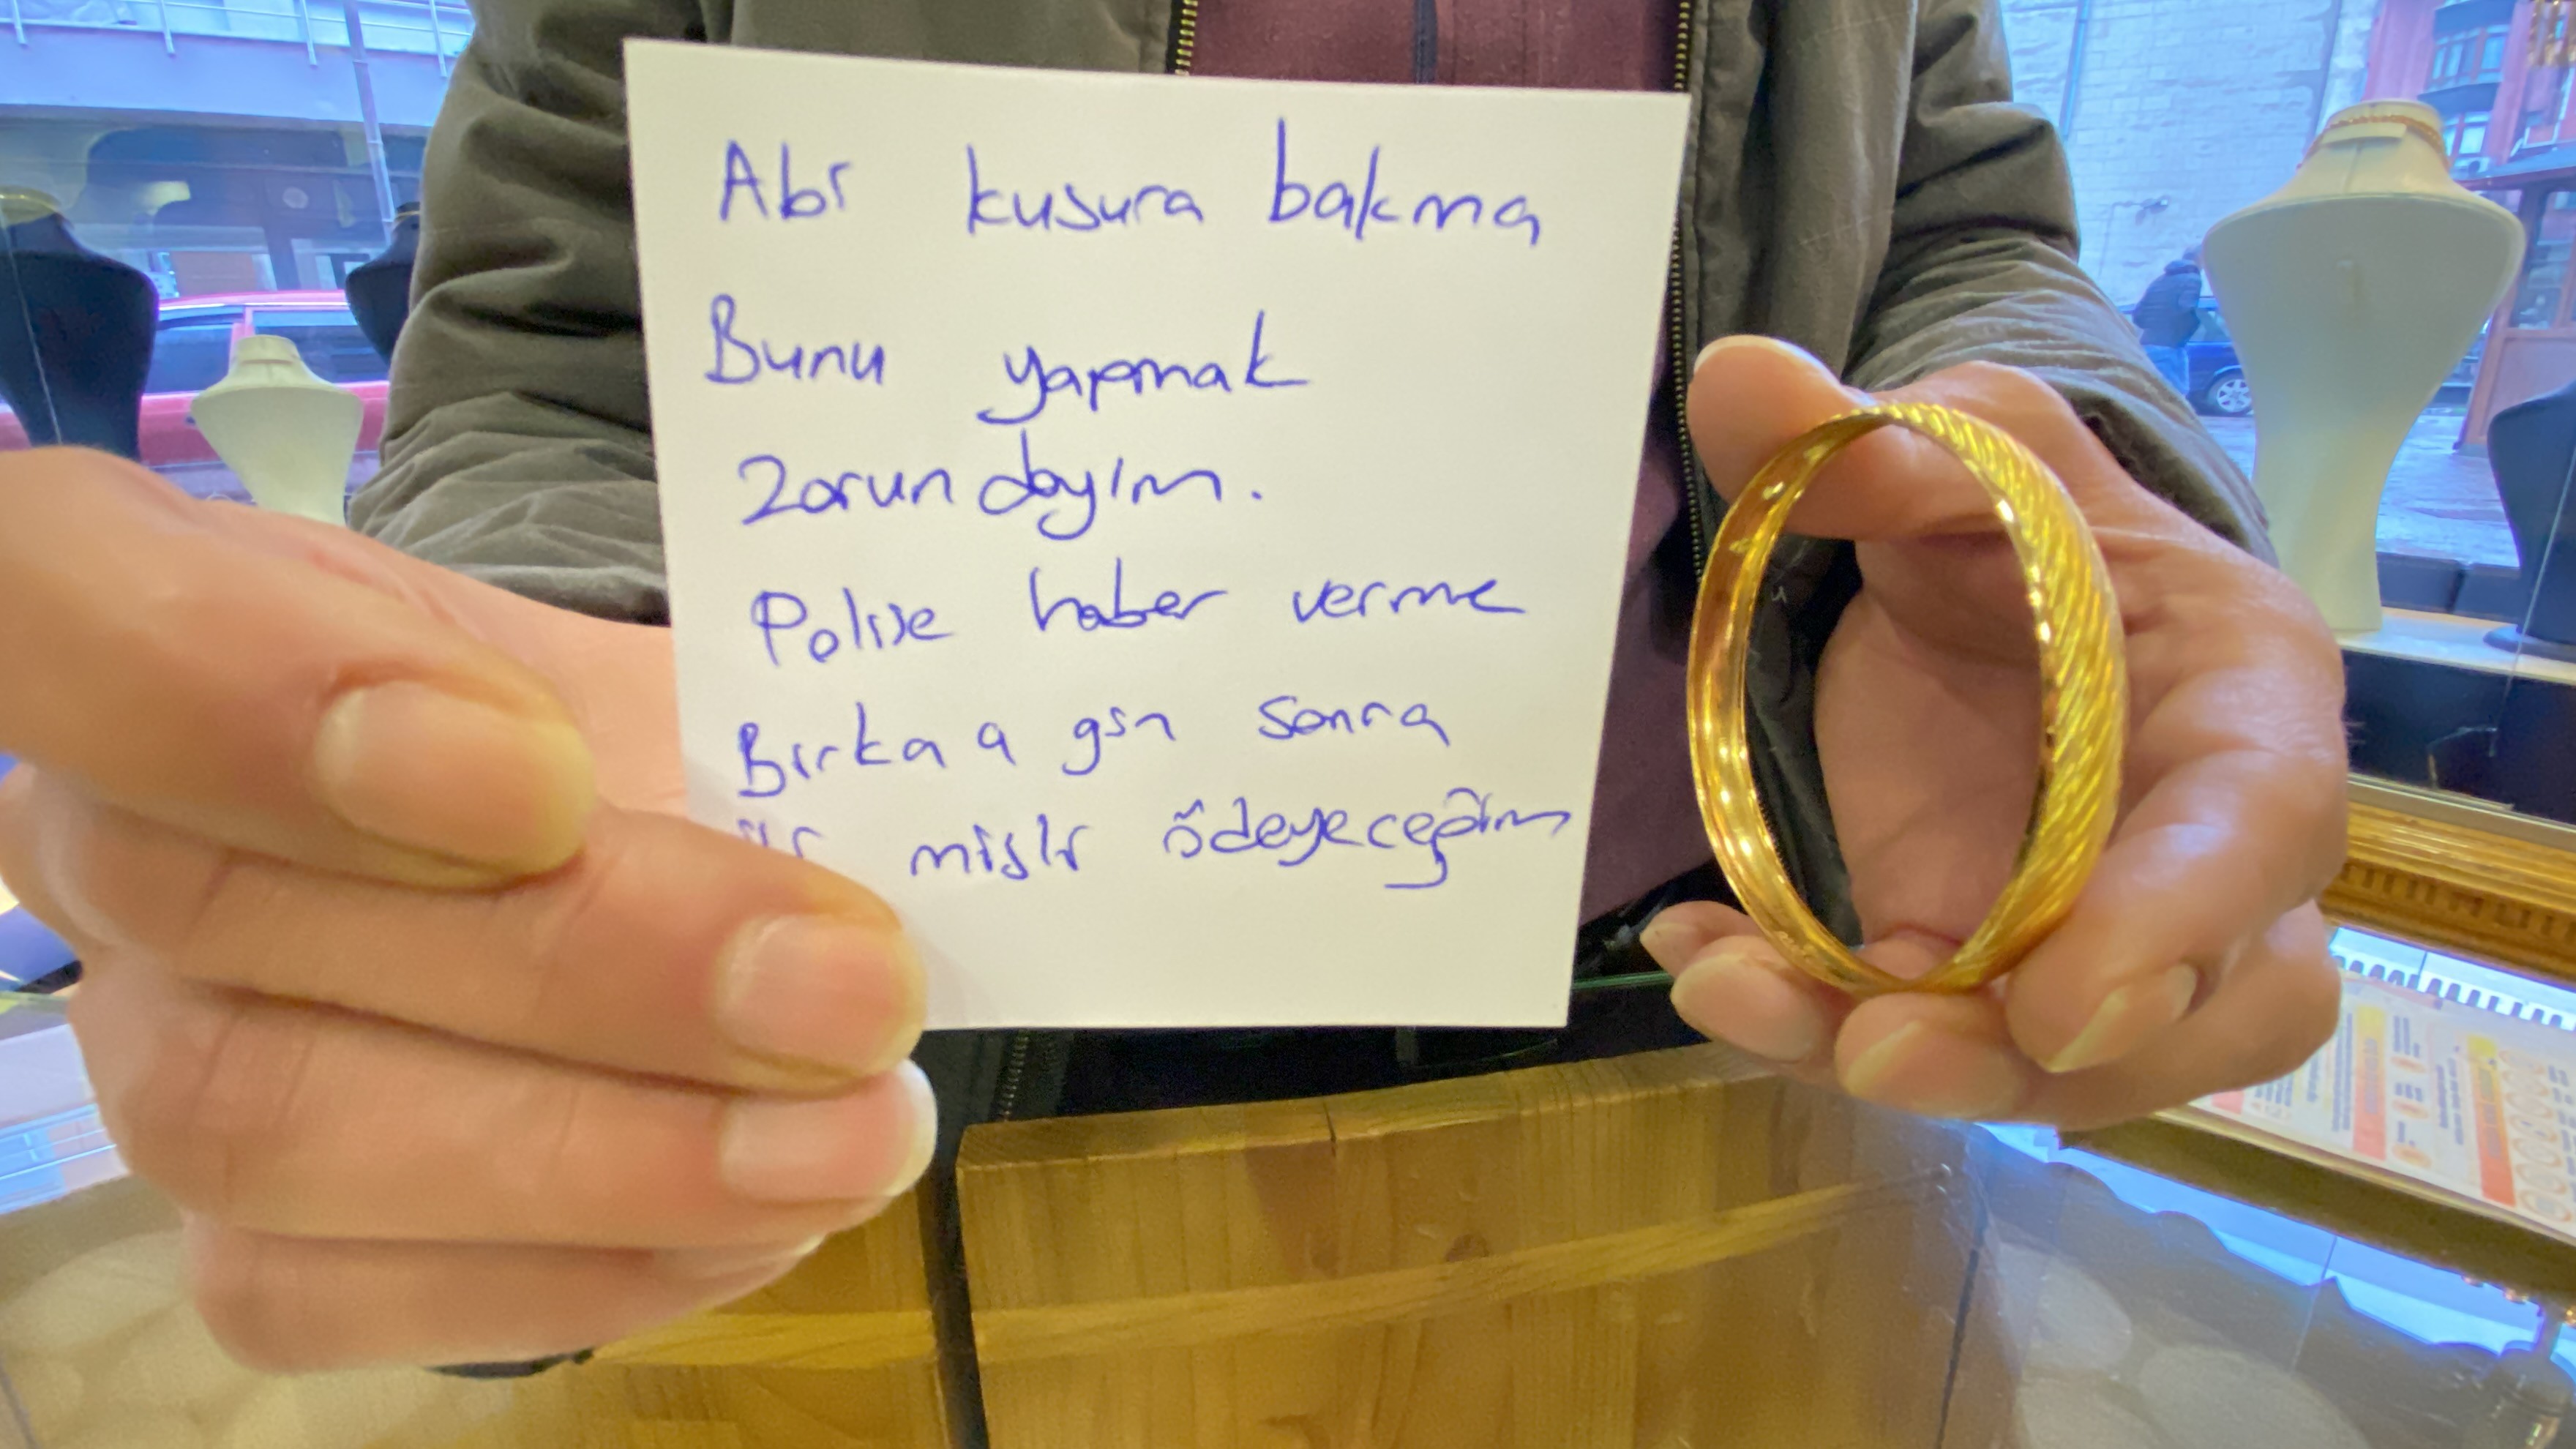 Abi kusura bakma
Bunu yapmak
Zorundayım.
Polise haber verme
Birkaa gün sonra
misli ödeyeceğim